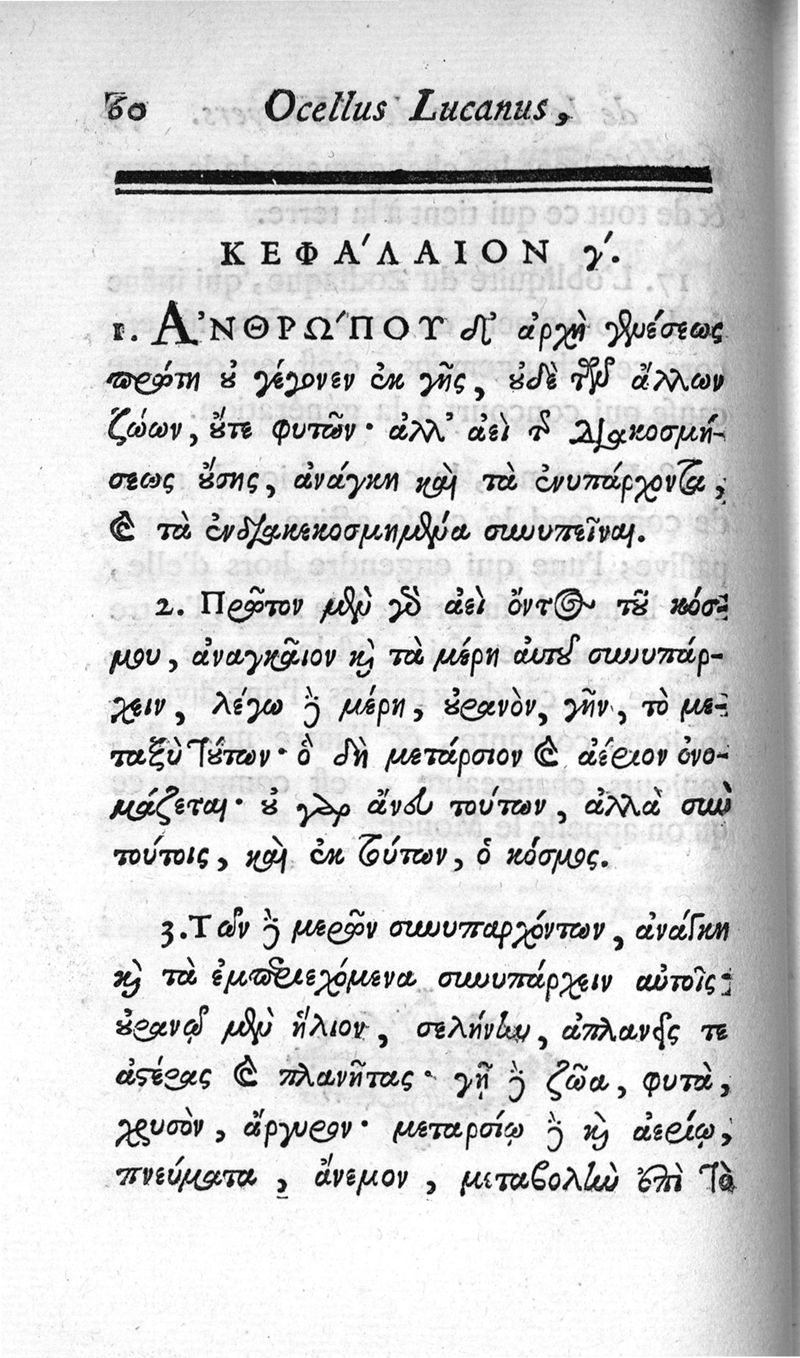 60 Ocellus Lucanus,
ΚΕΦΑ΄ΛΑΙΟΝ γ΄.
1. Α᾿ΝΘΡΩ΄ΠΟΥ δ᾿ ἀρχὴ γενέσεως
πρώτη ȣ γέγονεν ἐκ γῆς, ȣδὲ τῶν ἄλλων
ζώων, ȣ̓́τε φυτῶν· ἀλλ᾿ ἀεὶ τ͂ διακοσμή-
σεως ȣ̓́σης, ἀνάγκη καὶ τὰ ἐνυπάρχοντα,
καὶ τὰ ἐνδιακεκοσμημένα συνυπεῖναι.
2. Πρῶτον μὲν γὸ ἀεὶ ὄντος τȣ͂ κόσ-
μου, ἀναγκαῖον κ̀ τὰ μέρη αὐτȣ͂ συνυπάρ-
χειν, λέγω δὲ μέρη, ȣ̓ρανὸν, γῆν, τὸ με-
ταξὺ τȣ́των· ὃ δὴ μετάρσιον καὶ ἀέριον ὀνο-
μάζεται· ȣ γὰρ ἄνευ τούτων, ἀλλὰ σὺν
τούτοις, καὶ ἐκ τȣ́των, ὁ κόσμος.
3. Τῶν δὲ μερῶν συνυπαρχόντων, ἀνάγκη
κ̀ τὰ ἐμπεριεχόμενα συνυπάρχειν αὐτοῖς:
ȣ̓ρανῷ μὲν ἥλιον, σελήνην, ἀπλανεῖς τε
ἀϛέρας καὶ πλανῆτας· γῇ δὲ ζῶα, φυτὰ,
χρυσὸν, ἄργυρον· μεταρσίῳ δὲ κ̀ ἀερίῳ,
πνεύματα, ἄνεμον, μεταβολὴν ἐπὶ τὸ